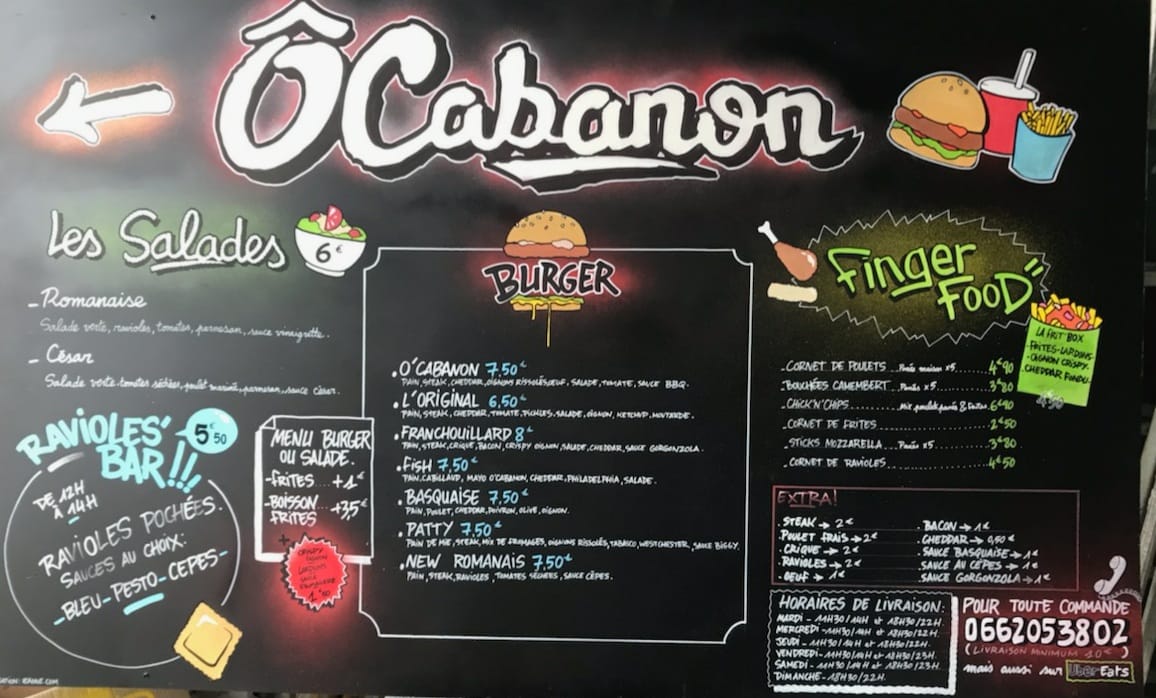 ÔCabanon
Les Salades
6€
- Romanaise
Salade verte, ravioles, tomates, parmesan, sauce vinaigrette.
- César
Salade verte, tomates séchées, poulet mariné, parmesan, sauce césar.
RAVIOLES'
BAR!!
5€50
DE 12H
À 14H
RAVIOLES POCHÉES.
SAUCES AU CHOIX:
-BLEU-PESTO-CEPES-
MENU BURGER
OU SALADE.
-FRITES...+1€
-BOISSON
FRITES +3,5€
+
CRISPY
OIGNON
LARDONS
SAUCE
1€50
BURGER
.O'CABANON 7,50€
PAIN, STEAK, CHEDDAR, OIGNONS RISSOLÉS, OEUF, SALADE, TOMATE, SAUCE BBQ.
.L'ORIGINAL 6,50€
PAIN, STEAK, CHEDDAR, TOMATE, PICKLES, SALADE, OIGNON, KETCHUP, MOUTARDE.
.FRANCHOUILLARD 8€
PAIN, STEAK, CRIQUE, BACON, CRISPY OIGNON, SALADE, CHEDDAR, SAUCE GORGONZOLA.
.FISH 7,50€
PAIN, CABILLAUD, MAYO O'CABANON, CHEDDAR, PHILADELPHIA, SALADE.
.BASQUAISE 7,50€
PAIN, POULET, CHEDDAR, POIVRON, OLIVE, OIGNON.
.PATTY 7,50€
PAIN DE MIE, STEAK, MIX DE FROMAGES, OIGNONS RISSOLÉS, TABASCO, WESTCHESTER, SAUCE BIGGY.
.NEW ROMANAIS 7,50€
PAIN, STEAK, RAVIOLES TOMATES SÉCHÉES, SAUCE CÈPES.
Finger
FOOD
LA FRIT'BOX
-FRITES-LARDONS-
-OIGNON CRISPY-
CHEDDAR FONDU-
4€50
-CORNET DE POULETS ... Panés maison x5 ... 4€90
-BOUCHÉES CAMEMBERT ... Panées x5 ... 3€80
-CHICK'N'CHIPS ... Mix poulet panés & Frites. 6€90
-CORNET DE FRITES ... 2€50
-STICKS MOZZARELLA ... Panés x5 ... 3€80
-CORNET DE RAVIOLES ... 4€50
EXTRA!
.STEAK → 2€
.POULET FRAIS → 2€
.CRIQUE → 2€
.RAVIOLES → 2€
.OEUF → 1€
.BACON → 1€
.CHEDDAR → 0,50€
.SAUCE BASQUAISE → 1€
.SAUCE AU CÈPES → 1€
.SAUCE GORGONZOLA → 1€
HORAIRES DE LIVRAISON:
MARDI - 11H30/14H et 18H30/22H.
MERCREDI - 11H30/14H et 18H30/22H.
JEUDI - 11H30/14H et 18H30/22H.
VENDREDI - 11H30/14H et 18H30/23H.
SAMEDI - 11H30/14H et 18H30/23H.
DIMANCHE - 18H30/22H.
POUR TOUTE COMMANDE
0662053802
(LIVRAISON MINIMUM 10€)
mais aussi sur UberEats